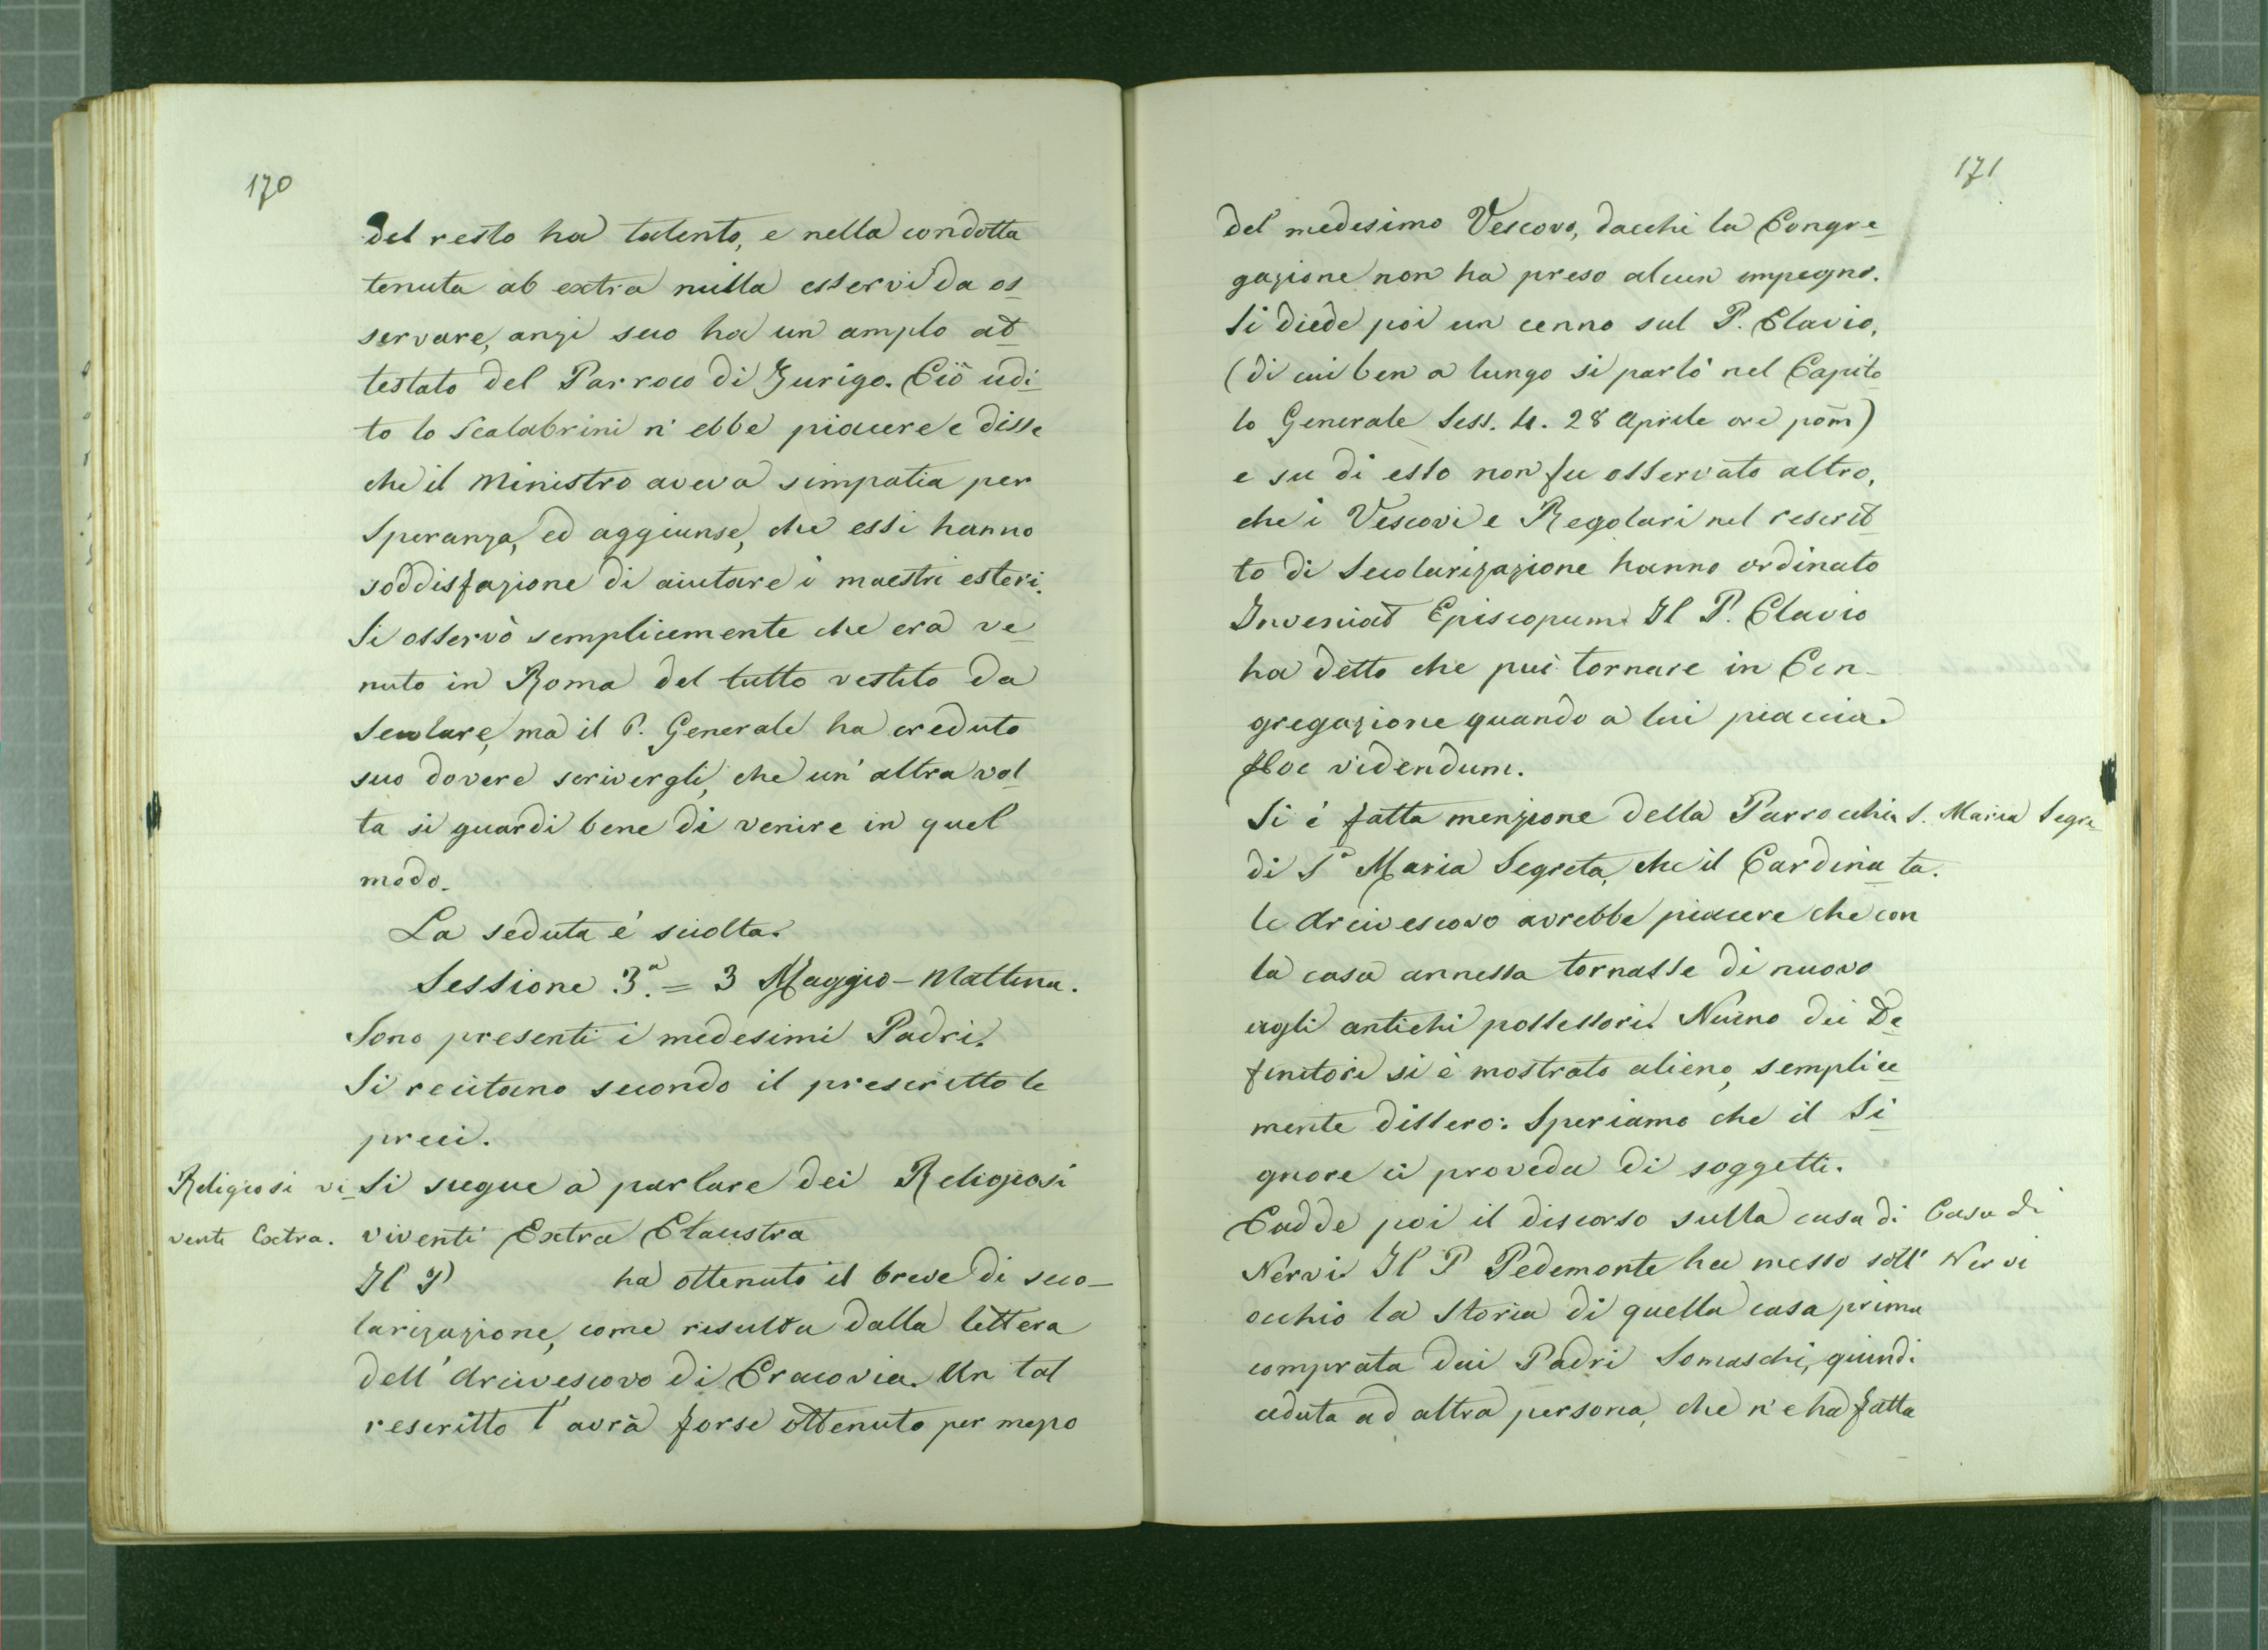 170
del resto ha talento, e nella condotta
tenuta ab extra nulla esservi da os_
servare, anzi seco ha un amplo at_
testato del Parroco di Zurigo. Ciò udi_
to lo Scalabrini n' ebbe piacere e disse
che il Ministro aveva simpatia per
Speranza, ed aggiunse, che essi hanno
soddisfazione di aiutare i maestri esteri.
Si osservò semplicemente che era ve_
nuto in Roma del tutto vestito da
secolare, ma il P. Generale ha creduto
suo dovere scrivergli, che un' altra vol_
ta si guardi bene di venire in quel
modo.
La seduta è sciolta.
Sessione 3.ª = 3 Maggio - Mattina.
Sono presenti i medesimi Padri.
Si recitano secondo il prescritto le
preci.
Religiosi vi_
venti Extra.
Si segue a parlare dei Religiosi
viventi Extra Claustra
Il P ha ottenuto il breve di seco_
larizazione, come risulta dalla lettera
dell' Arcivescovo di Cracovia. Un tal
rescritto l' avrà forse ottenuto per mezzo
171
del medesimo Vescovo, dacchi la Congre_
gazione non ha preso alcun impegno.
Si diede poi un cenno sul P. Clavio,
(di cui ben a lungo si parlò nel Capito
lo Generale Sess. 4. 28 Aprile ore pom)
e su di esso non fu osservato altro,
che i Vescovi e Regolari nel rescrit_
to di Secolarizazione hanno ordinato
Inveniat Episcopum. Il P. Clavio
ha detto che può tornare in Con_
gregazione quando a lui piaccia.
Hoc videndum.
Si è fatta menzione della Parrocchia
di S.ª Maria Segreta, che il Cardina_
le Arcivescovo avrebbe piacere che con
la casa annessa tornasse di nuovo
agli antichi possessori. Niuno dei De_
finitori si è mostrato alieno, semplice_
mente dissero: Speriamo che il Si_
gnore ci proveda di soggetti.
S. Maria Segre_
ta.
Cadde poi il discorso sulla casa di
Nervi. Il P Pedemonte ha messo sott'
occhio la Storia di quella casa prima
comprata dai Padri Somaschi, quindi
ceduta ad altra persona, che n'e ha fatta
Casa di
Nervi